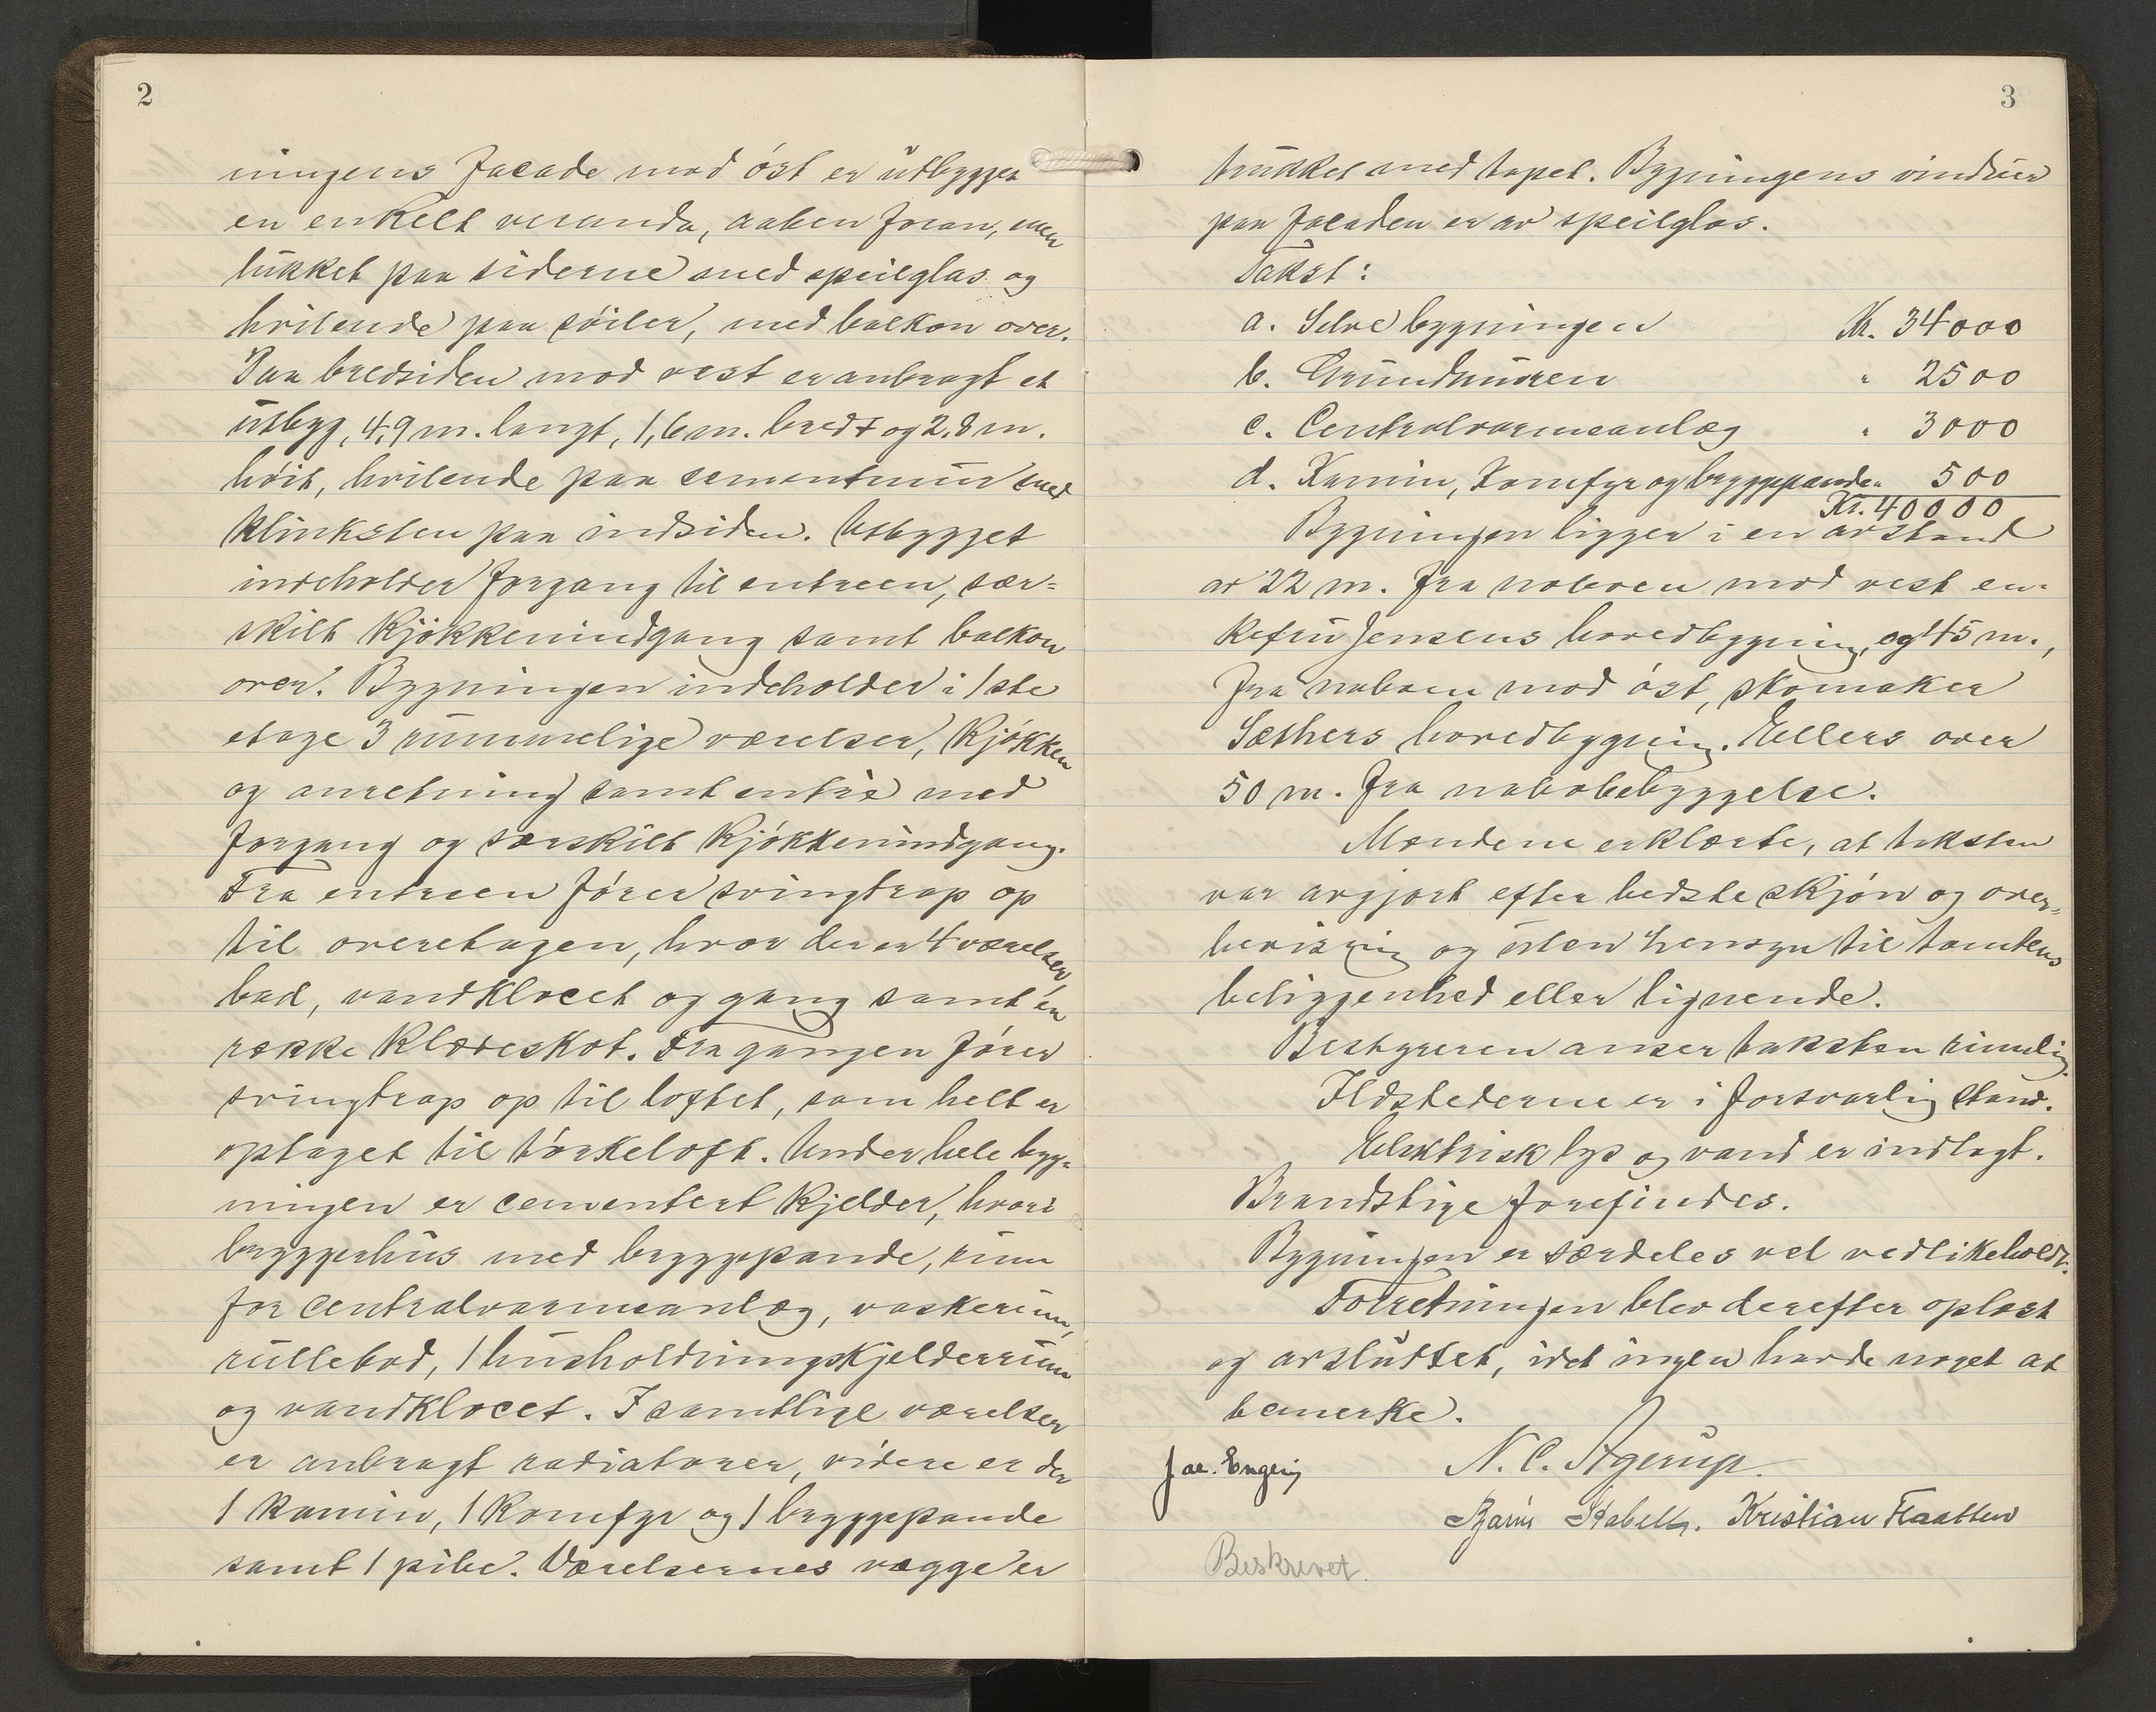 2
ningens facade mod øst er utbygget
en enkelt veranda, aaben foran, men
lukket paa siderne med speilglas og
hvilende paa søiler, med balkon over.
Paa bredsiden mod vest er anbragt et
utbyg, 4,9 m. langt, 1,6 m. bredt og 2,8 m.
høit, hvilende paa cementmur med
klinksten paa indsiden. Utbygget
indeholder forgang til entreen, sær-
skilt kjøkkenindgang samt balkon
over. Bygningen indeholder i 1ste
etage 3 rummelige værelser, kjøkken
og anretning samt entré med
forgang og særskilt kjøkkenindgang.
Fra entreen fører svingtrap op
til overetagen, hvor der er 4 værelser,
bad, vandklocet og gang samt en
række klæreskot. Fra gangen fører
svingtrap op til loftet, som helt er
optaget til tørkeloft. Under hele byg-
ningen er cementert kjelder, hvori
bryggerhus med bryggepande, rum
for centralvarmeanlæg, vaskerum,
rullebod, 1 husholdningskjelderrum
og vandklocet. I samtlige værelser
er anbragt radiatorer, videre er der
1 kamin, 1 komfyr og 1 bryggepande
samt 1 pibe. Værelsernes vægge er
3
trukket med tapet. Bygningens vinduer
paa facaden er av speilglas.
Takst:
a. Selve bygningen Kr. 34000
b. Grundmuren " 2500
c. Centralvarmeanlæg " 3000
d. Kamin, komfyr og bryggepande " 500
Kr. 40000
Bygningen ligger i en avstand
av 22 m. fra naboen mod vest en-
kefru Jensens hovedbygning, og 45 m.,
fra naboen mod øst, skomaker
Sæthers hovedbygning. Ellers over
50 m. fra nabobebyggelse.
Mændene erklærte, at taksten
var avgjort efter bedste skjøn og over-
bevisning og uten hensyn til tomtens
beliggenhed eller lignende.
Bestyreren anser taksten rimelig.
Ildstederne er i forsvarlig stand.
Elektrisk lys og vand er indlagt.
Brandstige forefindes.
Bygningen er særdeles vel vedlikeholdt.
Forretningen blev derefter oplæst
og avsluttet, idet ingen hadde noget at
bemerke.
Jac. Engerig N. C. Agerup.
Bjarne Stabell. Kristian Flaatten
Beskrevet.